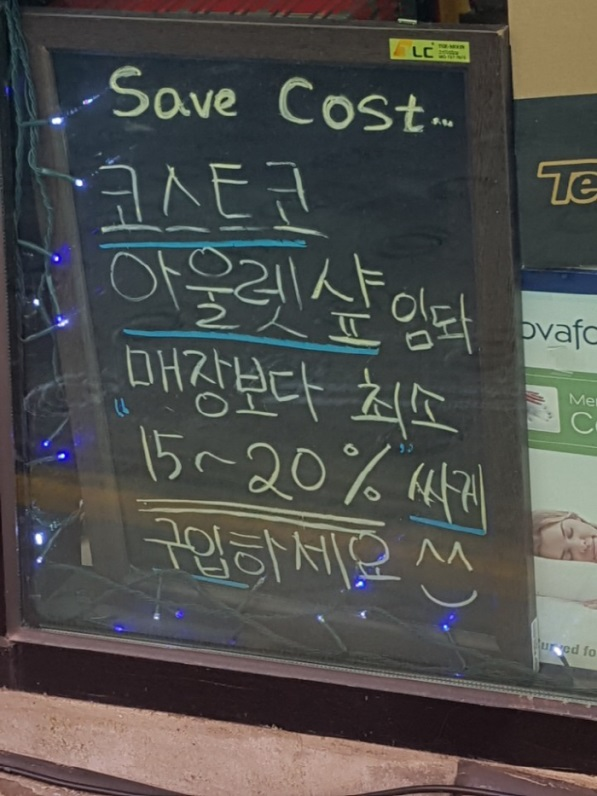 LC
Save Cost...
코스트코
아울렛샾 임돠
매장보다 최소
"15~20%" 싸게
구입하세요 ^^
Te
ovafo
Me
C
urved fo